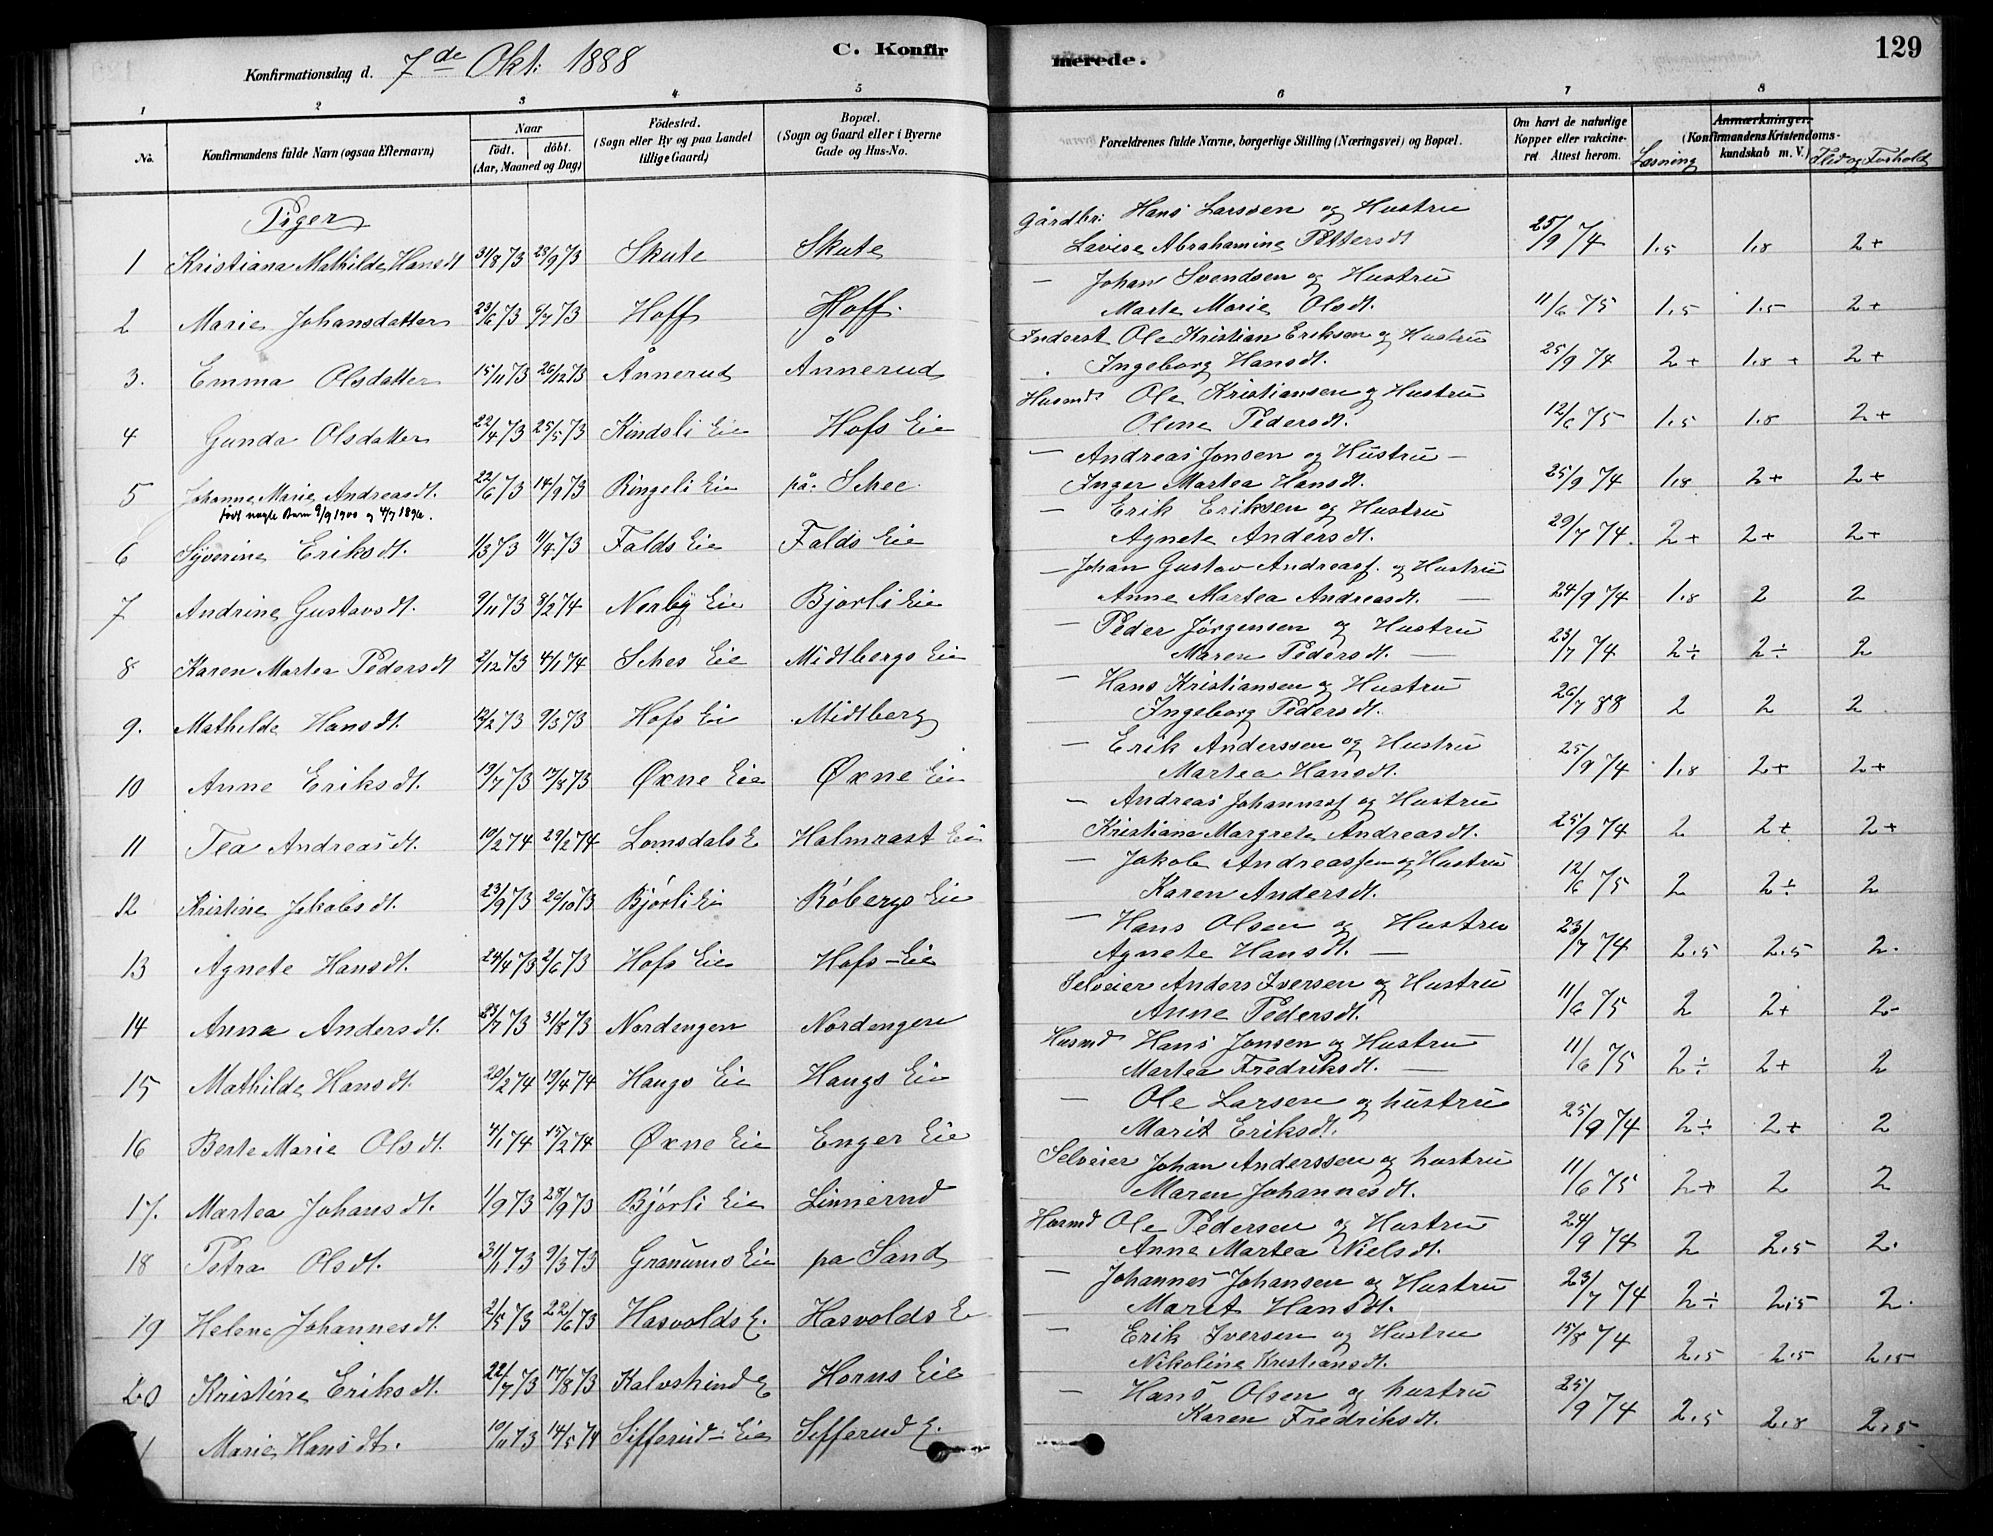 129
Konfirmationsdag d. 7de Okt. 1888
C. Konfirmerede.
1 2 3 4 5 6 7 8
No.
Konfirmandens fulde Navn (ogsaa Efternavn)
Naar
födt. döbt.
(Aar, Maaned og Dag)
Födested.
(Sogn eller By og paa Landet
tillige Gaard)
Bopæl.
(Sogn og Gaard eller i Byerne
Gade og Hus-No.
Forældrenes fulde Navne, borgerlige Stilling (Næringsvei) og Bopæl.
Om havt de naturlige
Kopper eller vakcine-
ret Attest herom.
Anmærkninger.
(Konfirmandens Kristendoms-
kundskab m. V.)
Læsning
Flid og Forhold
Piger
1 Kristiana Mathilde Hansdt 31/8 73 28/9 73 Skute Skute Gårdbr: Hans Larssen og Hustru
Lovise Abrahamine Pettersdt 25/9 74 1,5 1,8 2+
2 Marie Johansdatter 23/6 73 6/7 73 Hoff Hoff. — Johan Svendsen og Hustru
Marte Marie Olsdt. 11/6 75 1,5 1,5 2+
3. Emma Olsdatter 15/11 73 26/12 73 Ånnerud Ånnerud Inderst Ole Kristian Eriksen og Hustru
Ingeborg Hansdt. 25/9 74 2+ 1,8+ 2+
4 Gunda Olsdatter 22/4 73 25/5 73 Kindsli Eie Hofs Eie Husmd Ole Kristiansen og Hustru
Oline Pedersdt. 12/6 75 1,5 1,8 2+
5 Johanne Marie Andreasdt. 22/6 73 14/9 73 Ringeli Eie på Schee — Andreas Jonsen og Hustru —
Inger Martea Hansdt. 25/9 74 1,8 2+ 2+
født uægte Barn 9/9 1900 og 4/7 1896.
6 Syverine Eriksdt. 1/3 73 11/4 73 Falds Eie Falds Eie — Erik Eriksen og Hustru
Agnete Andersdt. 29/7 74. 2+ 2+ 2+
7 Andrine Gustavsdt. 9/11 73 8/2 74 Nerby Eie Bjørli Eie — Johan Gustav Andreass. og Hustru
Anne Martea Andreasdt. — 24/9 74 1,8 2 2
8 Karen Martea Pedersdt 2/12 73 4/1 74 Sches Eie Midtbergs Eie — Peder Jørgensen og Hustru
Maren Pedersdt. — 23/7 74 2÷ 2÷ 2
9. Mathilde Hansdt. 12/2 73 9/3 73 Hofs Eie Midtberg — Hans Kristiansen og Hustru
Ingeborg Pedersdt. 26/7 88 2 2 2
10 Anne Eriksdt. 19/7 73 17/8 73 Øxne Eie Øxne Eie — Erik Anderssen og Hustru
Martea Hansdt. 25/9 74 1,8 2+ 2+
11 Tea Andreasdt. 10/2 74 29/2 74 Lomsdals E Halmrast Eie — Andreas Johanness og Hustru
Kristiane Margrete Andreasdt. 25/9 74 2 2+ 2+
12 Kristine Jakobsdt. 23/9 73 26/10 73 Bjørli Eie Røbergs Eie — Jakob Andreassen og Hustru
Karen Andersdt. 12/6 75 2 2÷ 2
13 Agnete Hansdt. 24/4 73 2/6 73 Hofs Eie Hofs-Eie — Hans Olsen og Hustru
Agnete Hansdt. — 23/7 74 2,5 2,5 2.
14 Anna Andersdt. 23/7 73 31/8 73 Nordengen Nordengen Selveier Anders Iversen og Hustru
Anne Pedersdt. 11/6 75 2 2+ 2-
15 Mathilde Hansdt. 20/2 74 19/4 74 Haugs Eie Haugs Eie Husmd Hans Jonsen og Hustru
Martea Fredriksdt. — 11/6 75 2÷ 2+ 2
16 Berte Marie Olsdt. 4/1 74 15/2 74 Øxne Eie Enger Eie — Ole Larsen og hustru
Marit Eriksdt. 25/9 74 2÷ 2+ 2
17. Martea Johansdt. 1/9 73 28/9 73 Bjørli Eie Linnerud Selveier Johan Anderssen og hustru
Maren Johannesdt. 11/6 75 2+ 2 2
18 Petra Olsdt. 31/1 73 9/3 73 Granums Eie pa Sand Husmd Ole Pedersen og Hustru
Anne Martea Nielsdt. 24/9 74 2 2,5 2.
19 Helene Johannesdt. 2/5 73 22/6 73 Hasvolds E. Hasvolds E — Johannes Johansen og Hustru
Marit Hansdt. 23/7 74 2÷ 2,5 2.
20 Kristine Eriksdt. 22/7 73 17/8 73 Kalvskind E Horns Eie — Erik Iversen og Hustru
Nikoline Kristiansdt. 15/8 74 2,5 2,5 2,5
1 Marie Hansdt. 10/11 73 14/5 74 Sifferud-Eie Sifferud E. — Hans Olsen og hustru
Karen Fredriksdt. 25/9 74 2,5 2,8 2,5